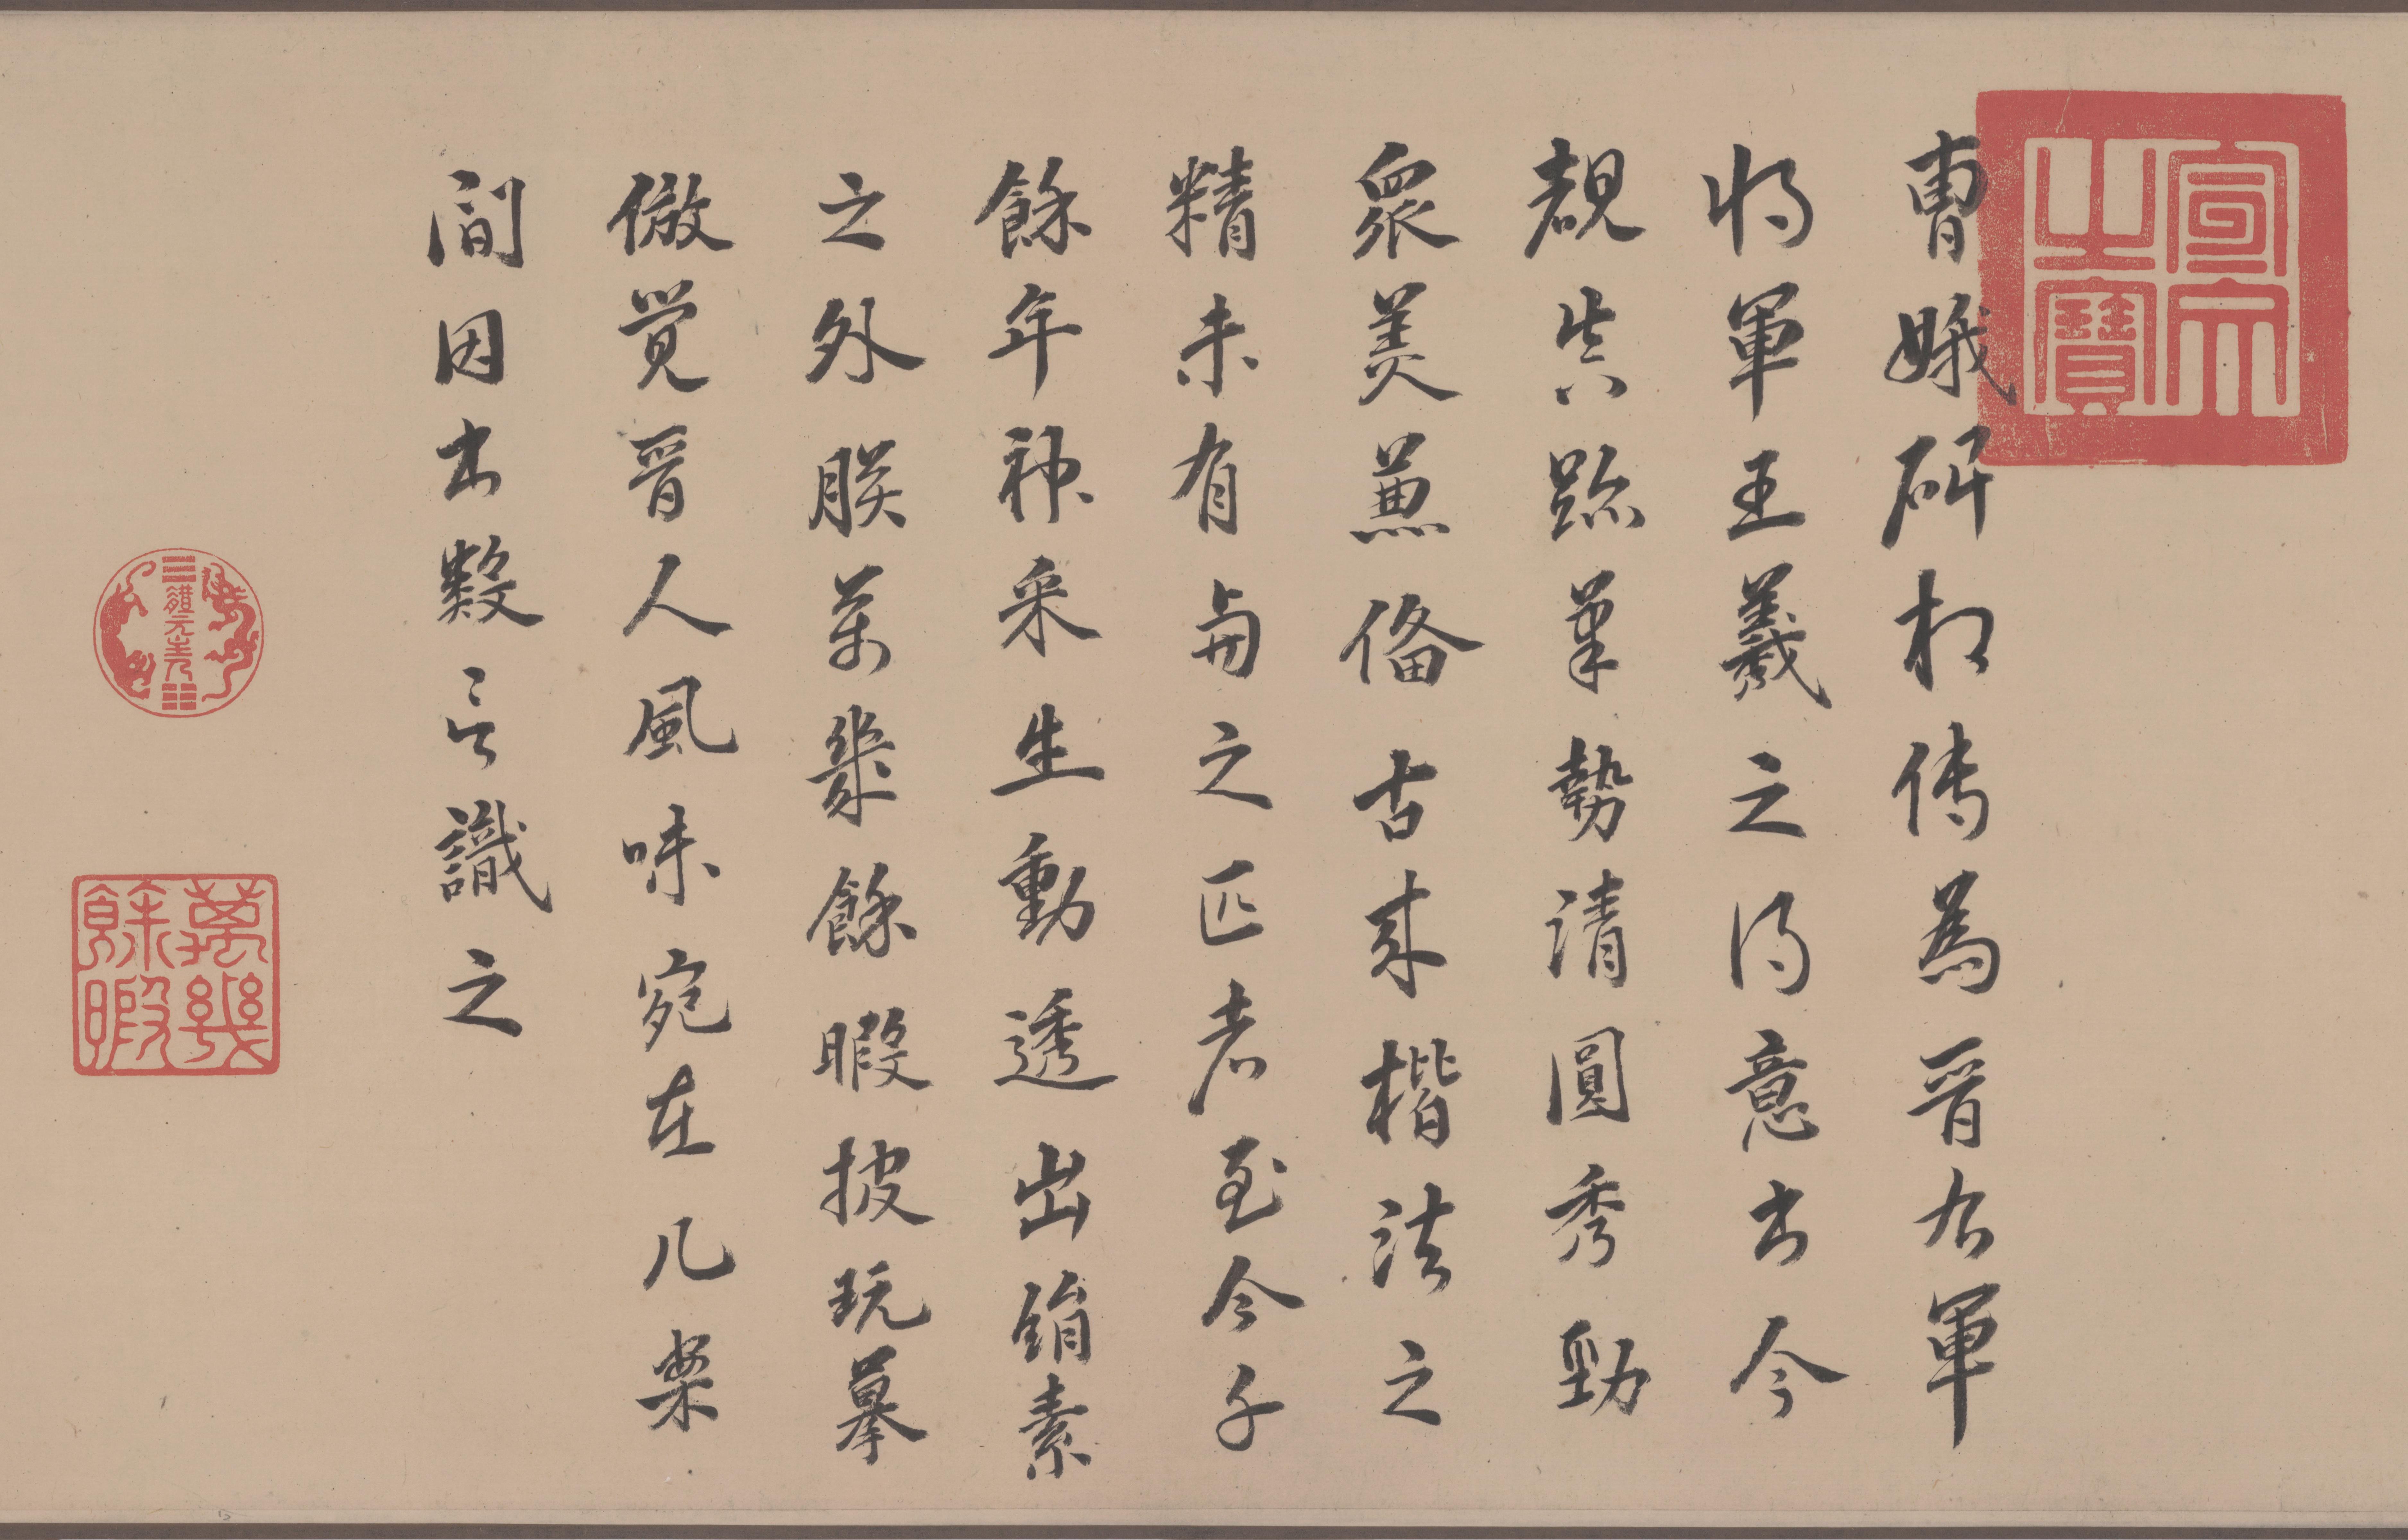 曹娥碑相传為晉右軍
将軍王羲之得意书今
覩真跡筆勢清圓秀勁
衆美兼備古来楷法之
精未有與之匹者至今千
餘年神采生動透出絹素
之外朕萬幾餘暇披玩摹
倣覺晉人風味宛在几案
間因书數言識之
宣文之寶
體元主人
萬幾餘暇